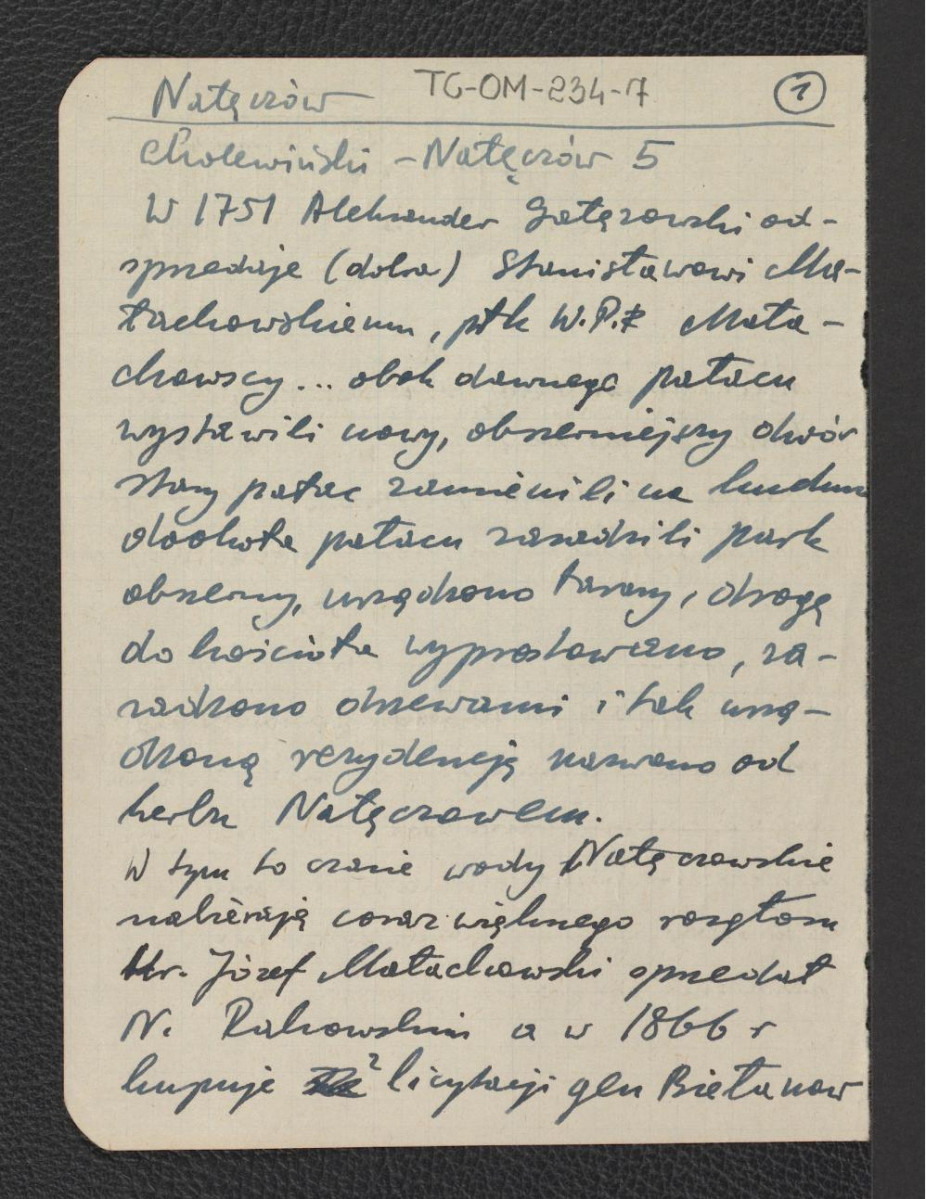 Nałęczów TG-OM-234-7 1
Cholewiński – Nałęczów 5
W 1751 Aleksander Gałęzowski od-
sprzedaje (dobra) Stanisławowi Ma-
łachowskiemu, płk W.P. Mała-
chowscy... obok dawnego pałacu
wystawili nowy, obszerniejszy dwór
stary pałac zamienili na
dookoła pałacu zasadzili park
obszerny, urządzono tarasy, drogę
do kościoła wyprostowano, za-
sadzono drzewami i tak urzą-
dzoną rezydencję nazwano od
herbu Nałęczowem.
W tym to czasie wody Nałęczowskie
nabierają coraz większego rozgłosu
Hr. Józef Małachowski sprzedał
N. Rakowskim a w 1866 r
kupuje z licytacji gen Biełanow